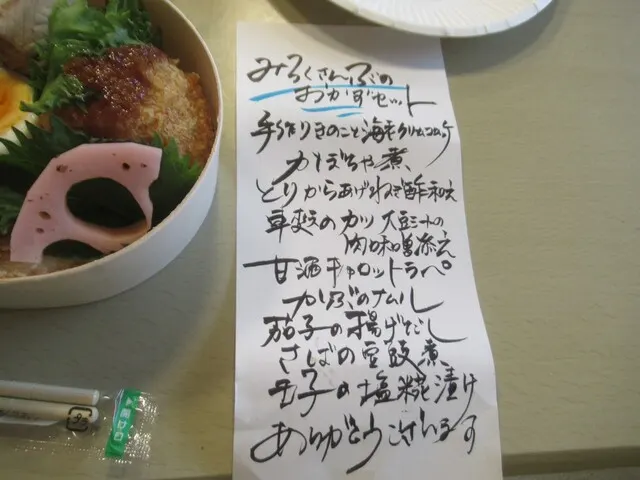 みろくさんぶの
おかずセット
手作りきのこと海老クリームコロッケ
かぼちゃ煮
とりからあげねぎ酢和え
車麩のカツ 大豆ミートの
肉味噌添え
甘酒キャロットラペ。
かぶのナムル
茄子の揚げだし
さばの豆豉煮
玉子の塩糀漬け
ありがとうございます
開け口